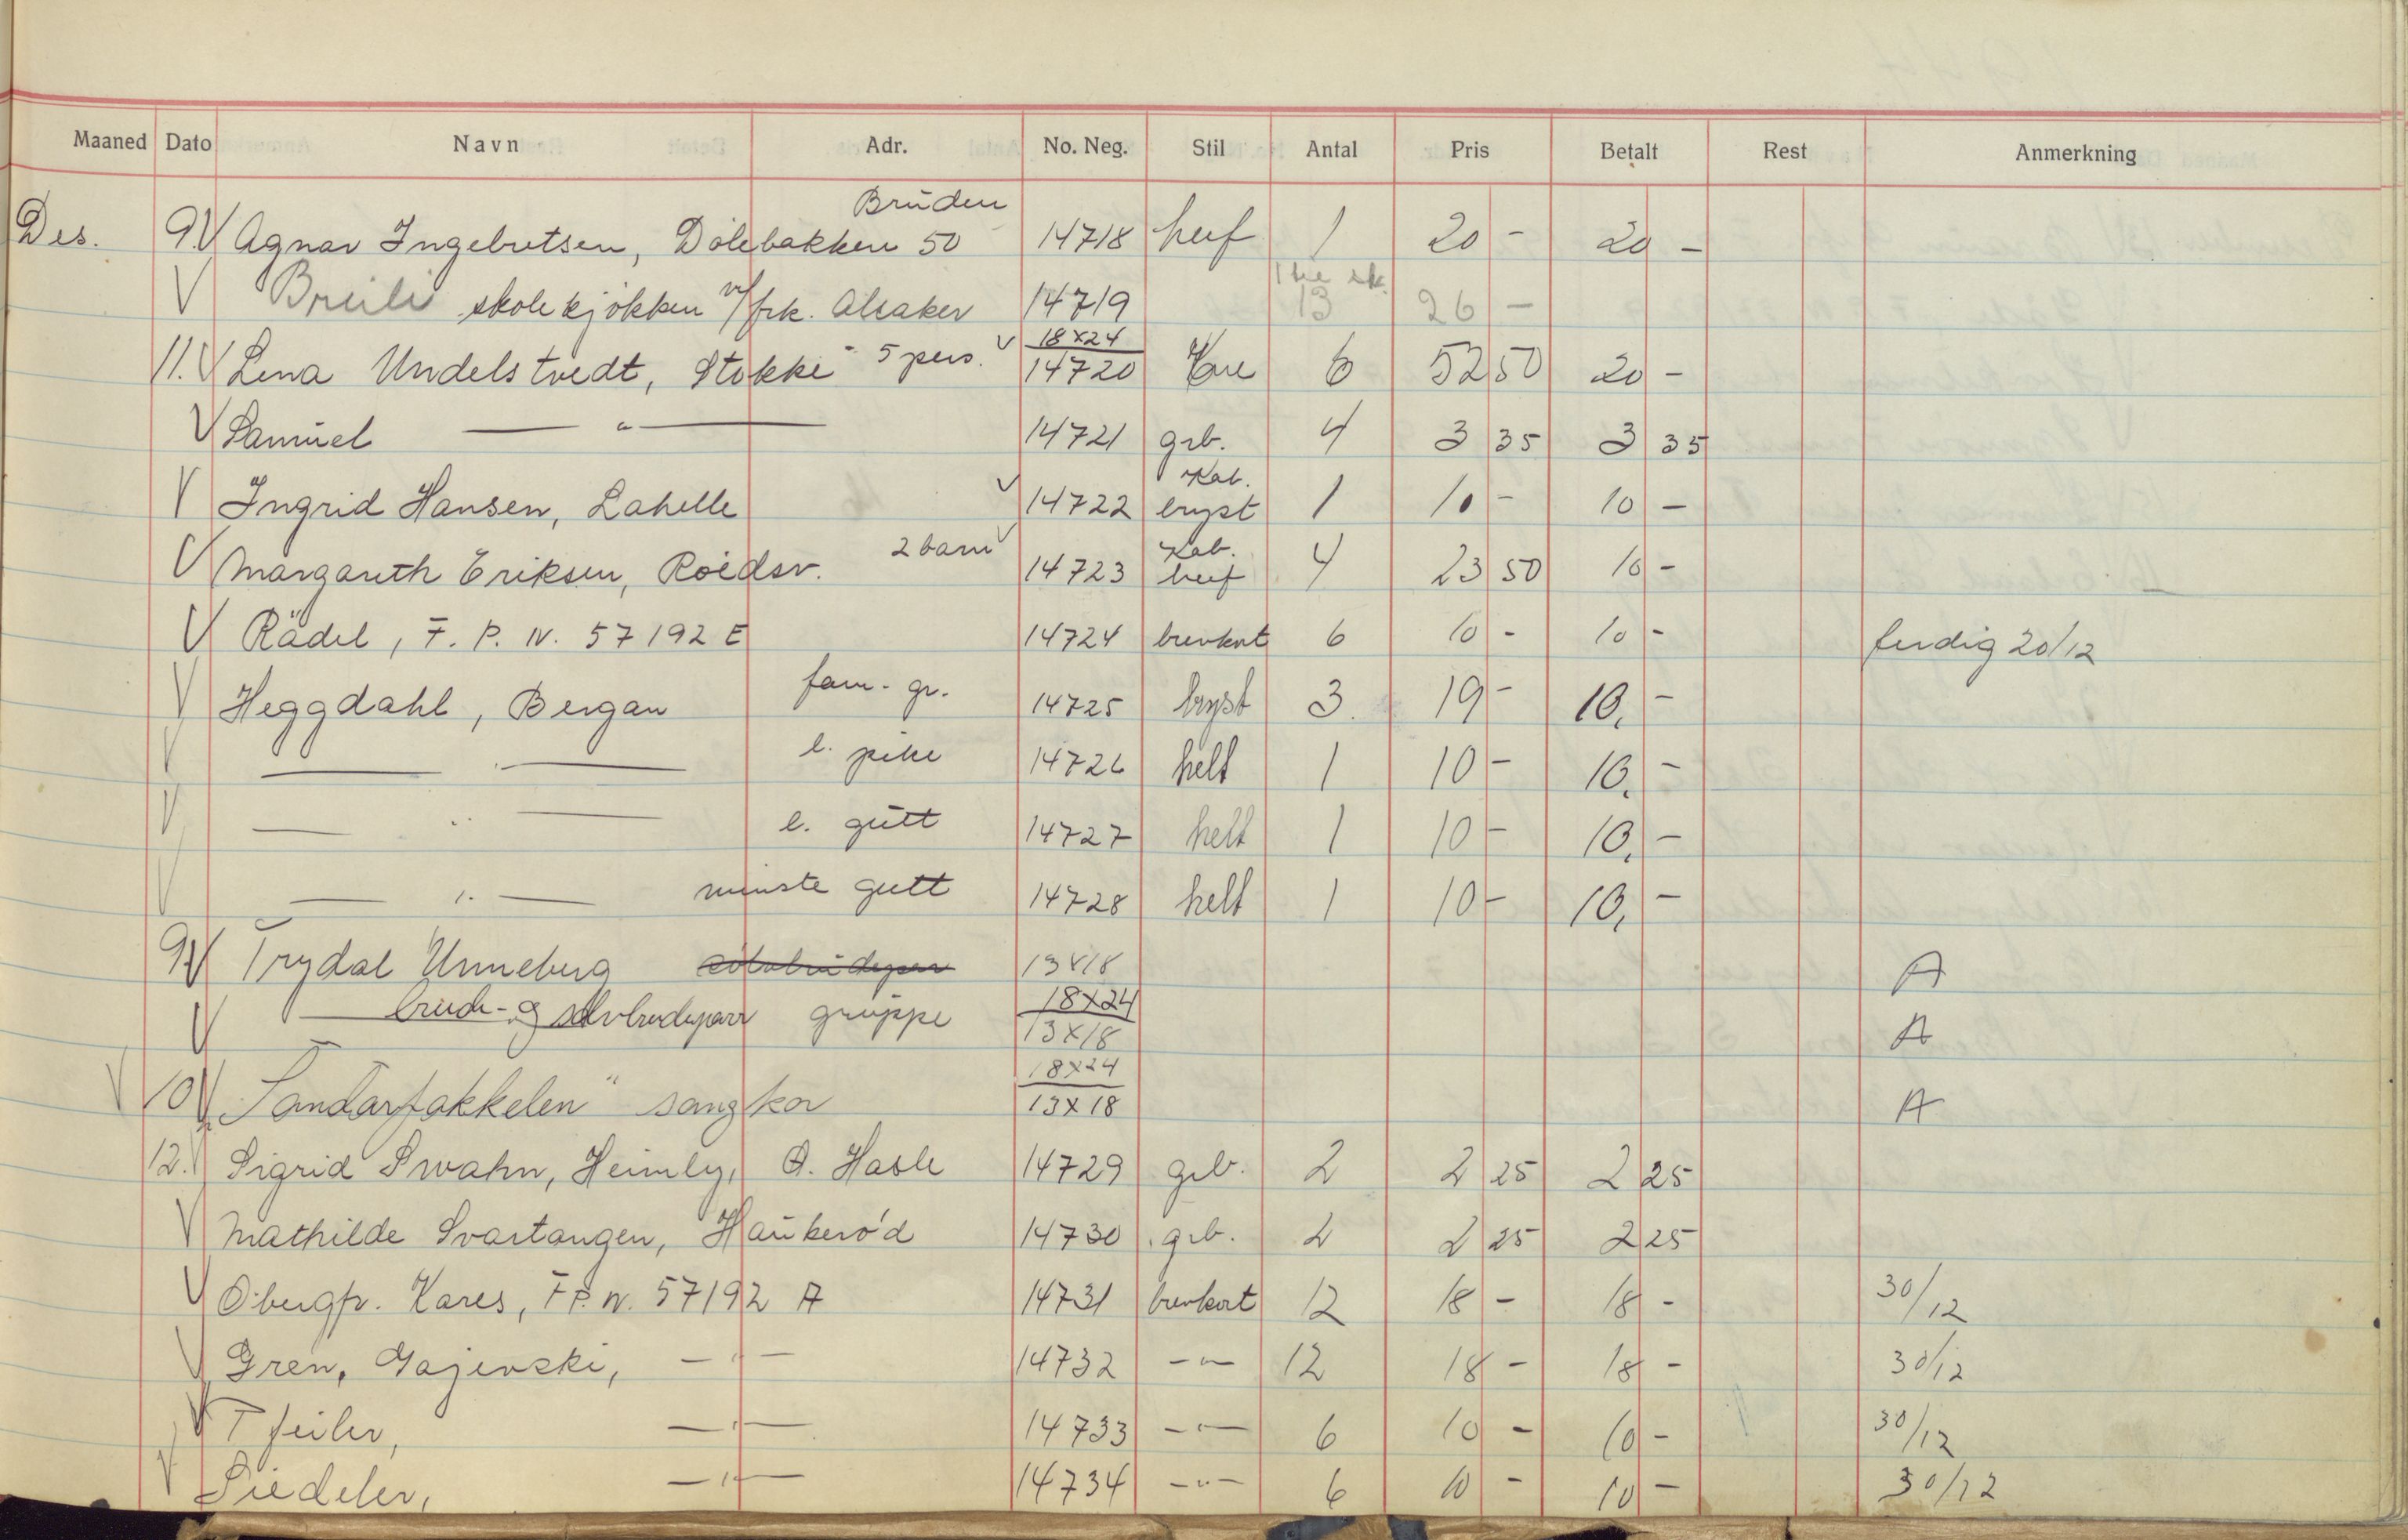 Maaned Dato Navn Adr. No. Neg. Stil Antal Pris Betalt Rest Anmerkning
Brūden
Des. 9. V Agnar Ingebretsen, Dölebakken 50 14718 1 20 - 20 -
V Breili skolekjøkken v/frk. Alsaker 14719 13 26 -
11. V Lena Undelstvedt, Stokke 5 pers. V 18x24 14720 6 52 50 20 -
V Samūel — " — 14721 grb. 4 3 35 3 35
V Ingrid Hansen, Lahelle V 14722 Kab. bryst 1 10 - 10 -
V Margareth Eriksen, Roidsv. 2 barn V 14723 Kab. 4 23 50 10 -
V Rädel, F. P. N. 57192 E 14724 brevkort 6 10 - 10 - ferdig 20/12
V Heggdahl, Bergan fam-gr. 14725 bryst 3 19 - 10,-
V — " — l. pike 14726 helt 1 10 - 10,-
V — " — l. gūtt 14727 helt 1 10 - 10,-
V — " — minste gutt 14728 helt 1 10 - 10,-
9. V Trydal Unneberg 13x18 A
V — brude- og sølvbrudepar grūppe 18x24 13x18 A
V 10 V „Tandarfakkelen" sangkor 18x24 13x18 A
12. V Sigrid Swahn, Heimly, Ø. Hasle 14729 grb. 2 2 25 2 25
V Mathilde Svartangen, Haūkerød 14730 grb. 2 2 25 2 25
V Obergfr. Kares, F.P.N. 57192 A 14731 brevkort 12 18 - 18 - 30/12
V Gren. Gajewski, — " — 14732 — " — 12 18 - 18 - 30/12
V Tfeiler, — " — 14733 — " — 6 10 - 10 - 30/12
V Siedeler, — " — 14734 — " — 6 10 - 10 - 30/12